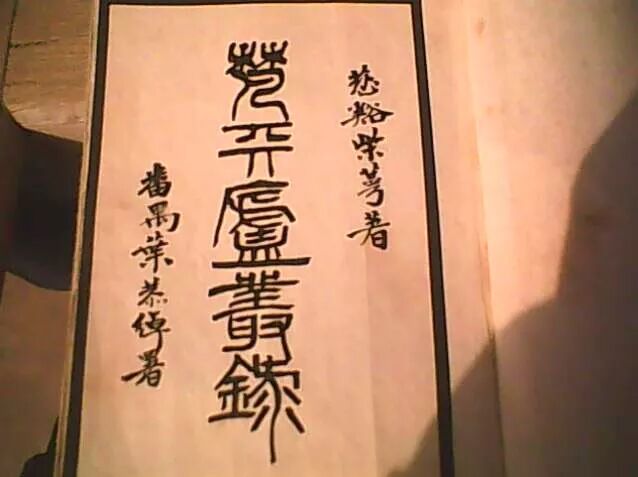 慈谿柴萼著
梵天廬叢錄
番禺葉恭綽署